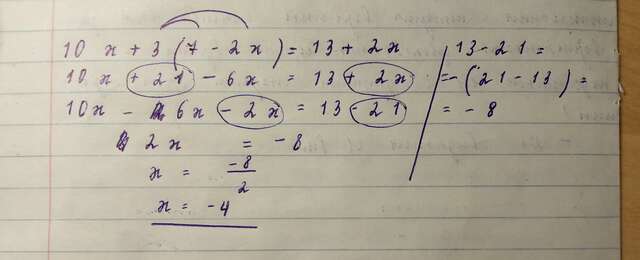 10 x + 3 (7 - 2x) = 13 + 2x
10x + 21 - 6x = 13 + 2x
10x - 6x - 2x = 13 - 21
2x = -8
x = -8/2
x = -4
13 - 21 =
= - (21 - 13) =
= - 8